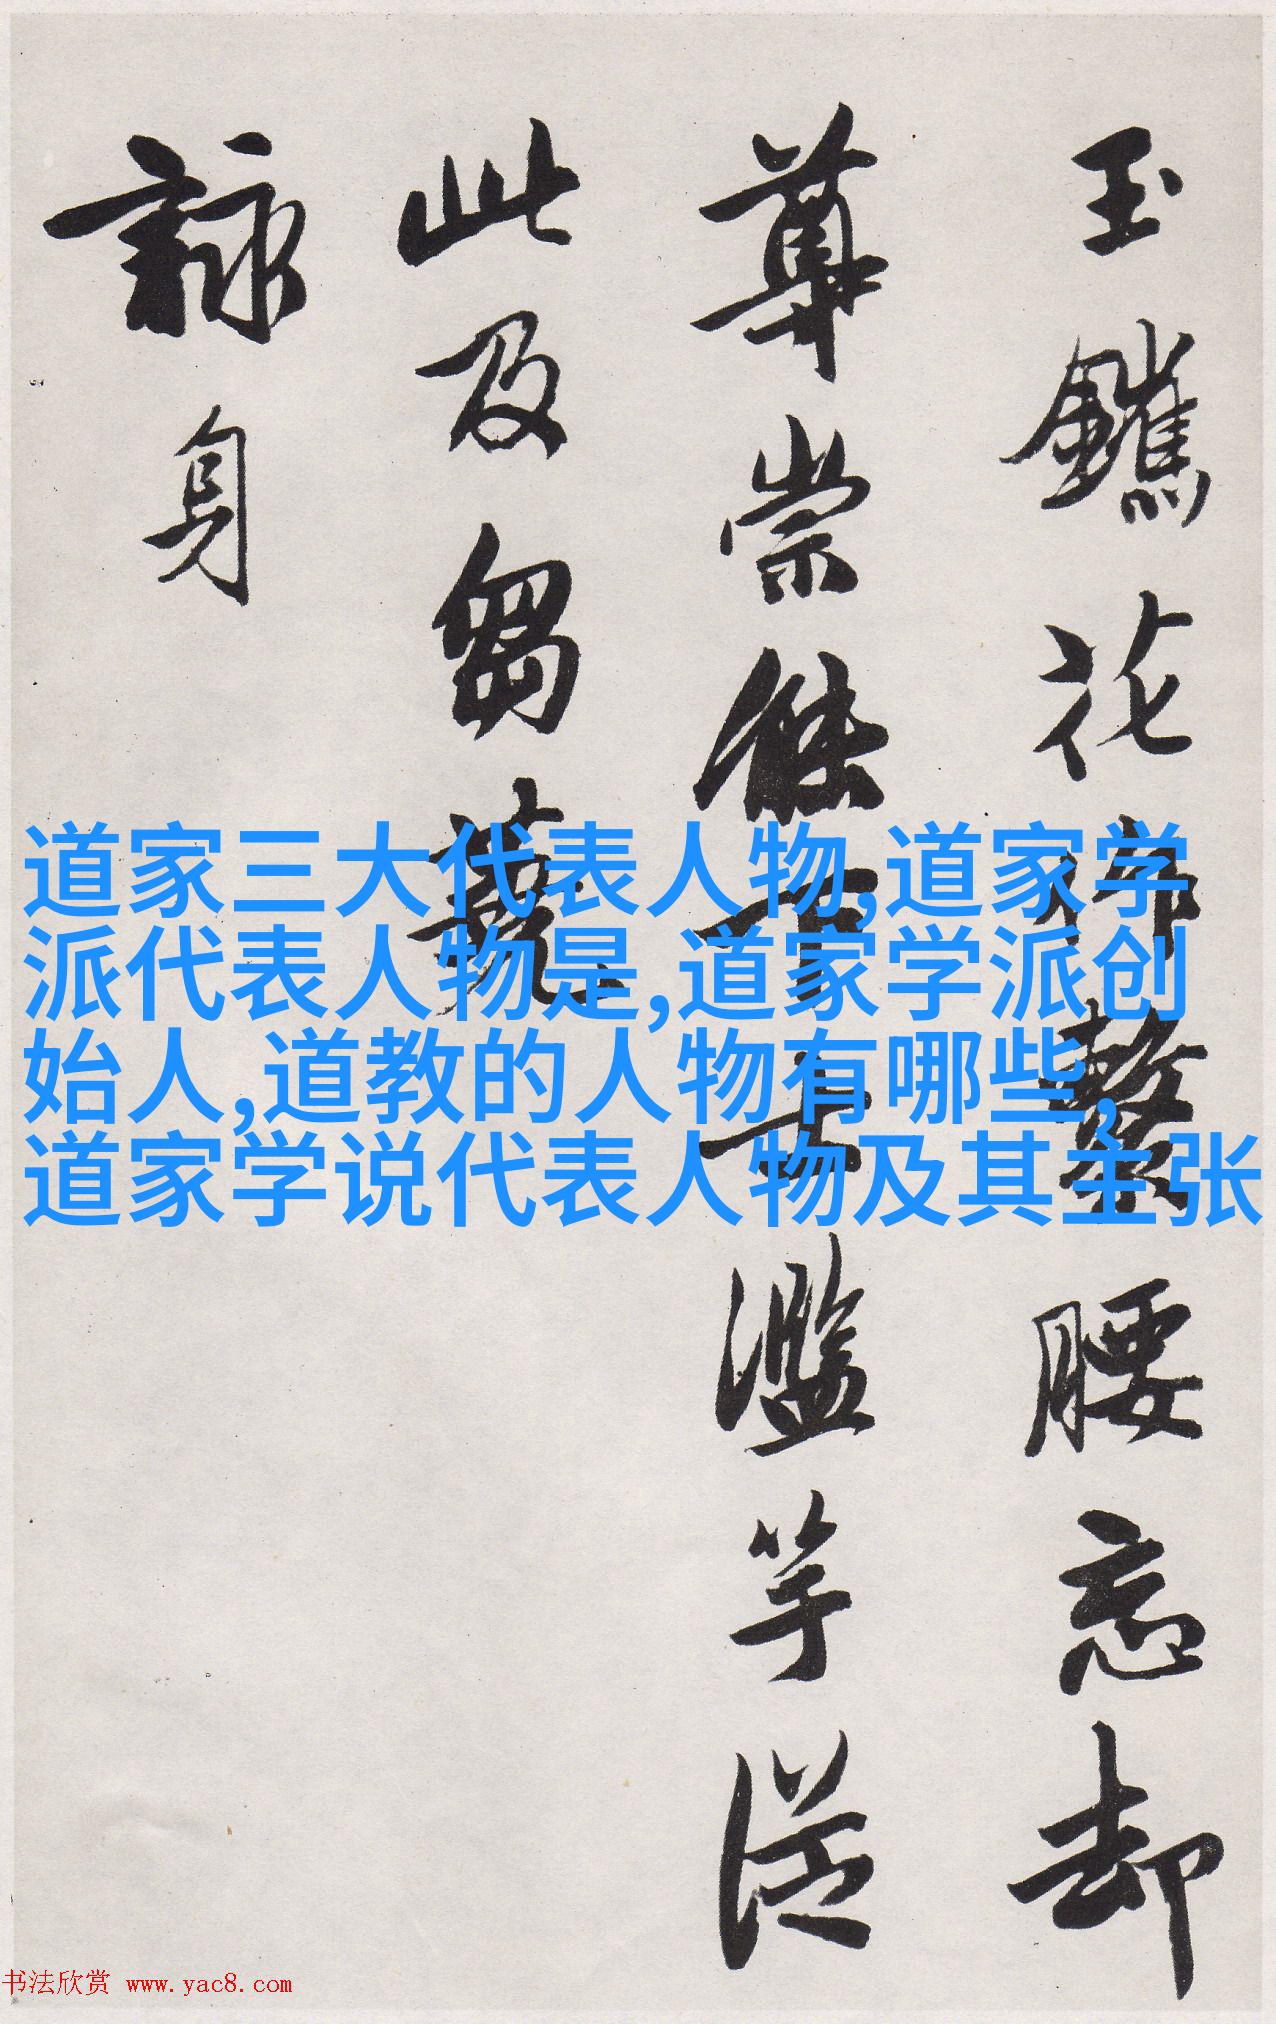 玉花繫腰忘却
崇下士濫竽從
此及芻蕘
詠身
道家三大代表人物,道家学
派代表人物是,道家学派创
始人,道教的人物有哪些,
道家学说代表人物及其主张
书法欣赏 www.yac8.com